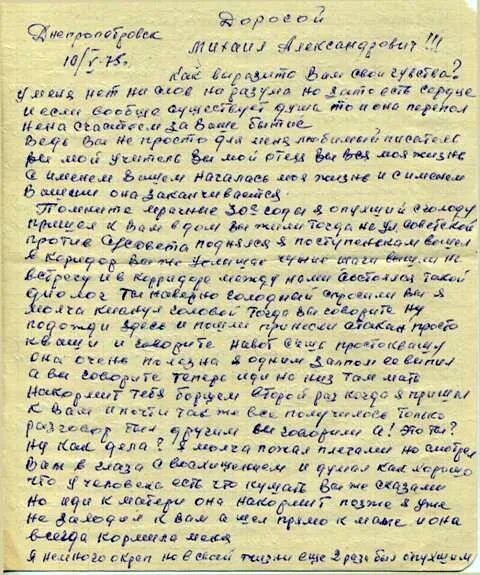 Дорогой
Днепропетровск
Михаил Александрович!!!
10/V-75г.
Как выразить Вам свои чувства?
У меня нет ни слов ни разума но зато есть сердце
и если вообще существует душа то и она перепол
нена счастьем за Ваше бытие
Ведь Вы не просто для меня любимый писатель
Вы мой учитель Вы мой отец Вы вся моя жизнь
С именем Вашем началась моя жизнь и с именем
Вашеим она заканчивается.
Помните мрачные 30е годы я опухший с голоду
пришел к Вам в дом Вы жили тогда на ул Советской
против поднялся я по ступенькам вошел
в Коридор Вы же услышав чужие шаги вышли на
встречу и в корридоре между нами состоялся такой
диолог Ты наверно голодный спросили Вы я
молча кивнул головой тогда Вы говорите ну
подожди здесь и пошли принесли стакан просто
кваши и говорите на вот съешь простоквашу
она очень полезна я одним залпом ее выпил
а вы говорите теперь иди на низ там мать
накормит тебя борщем второй раз когда я пришел
к Вам и почти так же все получилось только
разговор был другим вы говорили А! Это ты?
Ну как дела? Я молча пожал плечами но смотрел
Вам в глаза с восхищением и думал как хорошо
что у человека есть что кушать Вы же сказали
но иди к матери она накормит позже я уже
не заходил к Вам а шел прямо к маме и она
всегда кормила меня
Я немного окреп но в своей жизни еще 2 раза был опухшим